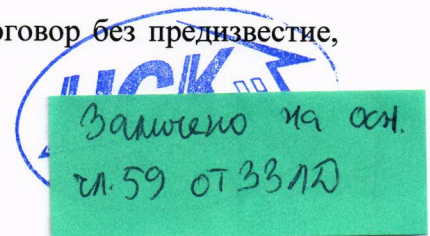 оговор без предизвестие,
НСК
Заличено на осн.
чл. 59 от ЗЗЛД